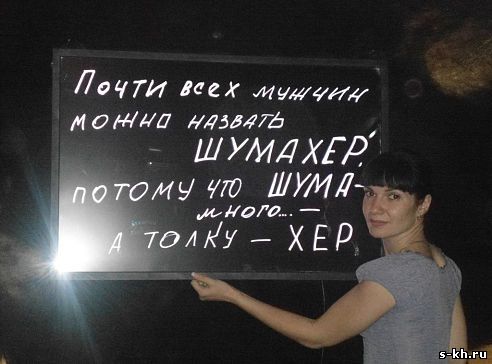 Почти всех мужчин
можно назвать
ШУМАХЕР!
потому что ШУМА–
много...–
а толку – ХЕР
s-kh.ru